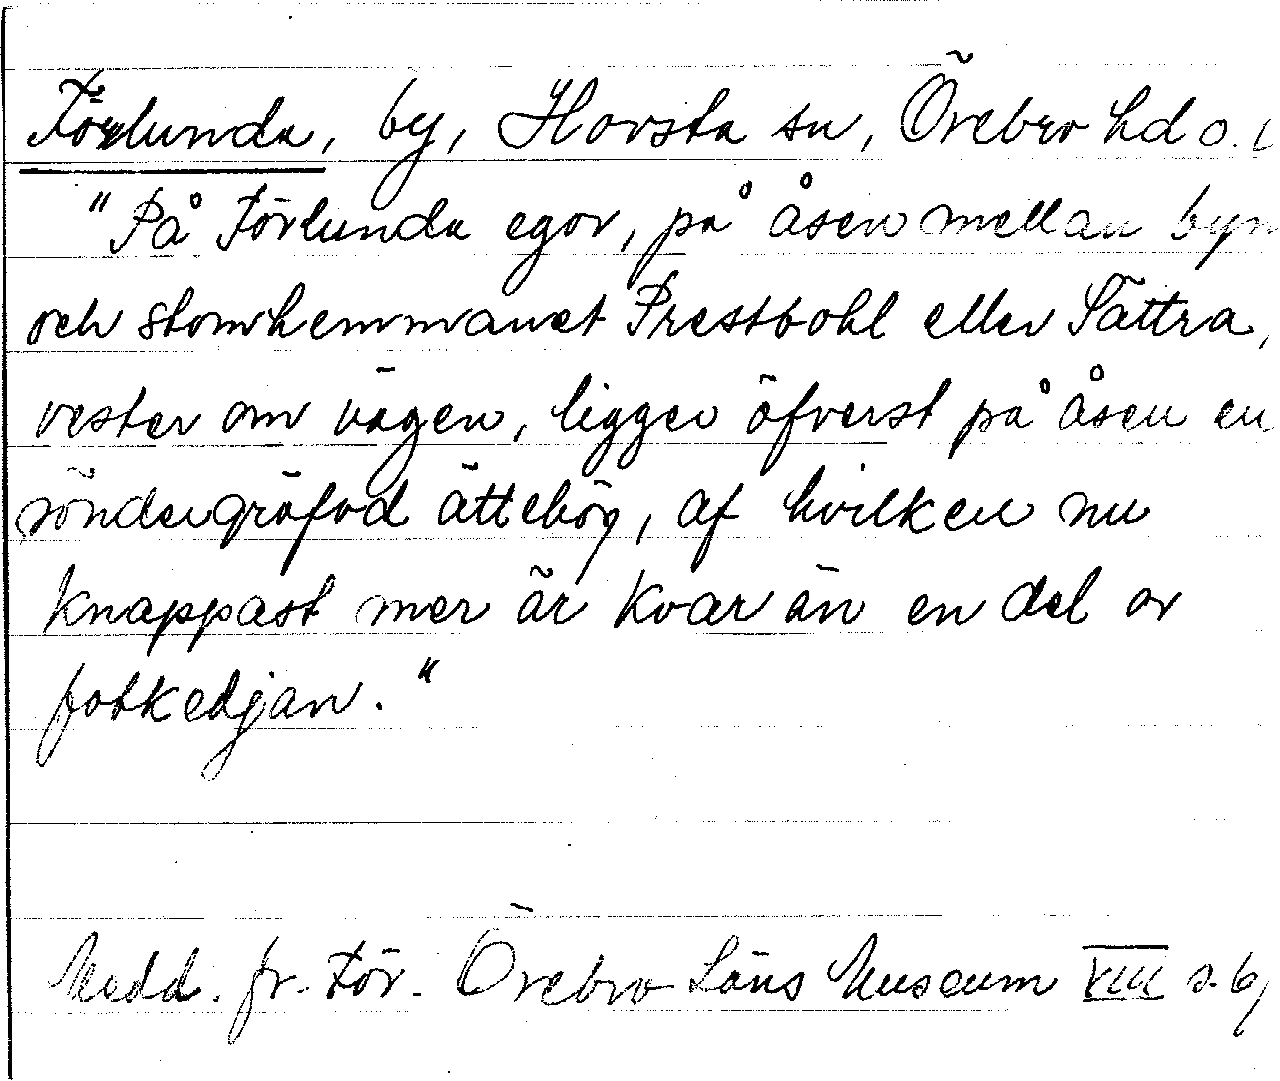 Förlunda, by, Hovsta sn, Örebro hd o.
"På Förlunda egor, på åsen mellan byn
och stomhemmanet Prestbohl eller Sättra,
vester om vägen, ligger öfverst på åsen en
söndergräfvd ättehög, af hvilken nu
knappast mer är kvar än en del av
fotkedjan."
Medd. fr. För. Örebro Läns Museum VIII s. 6